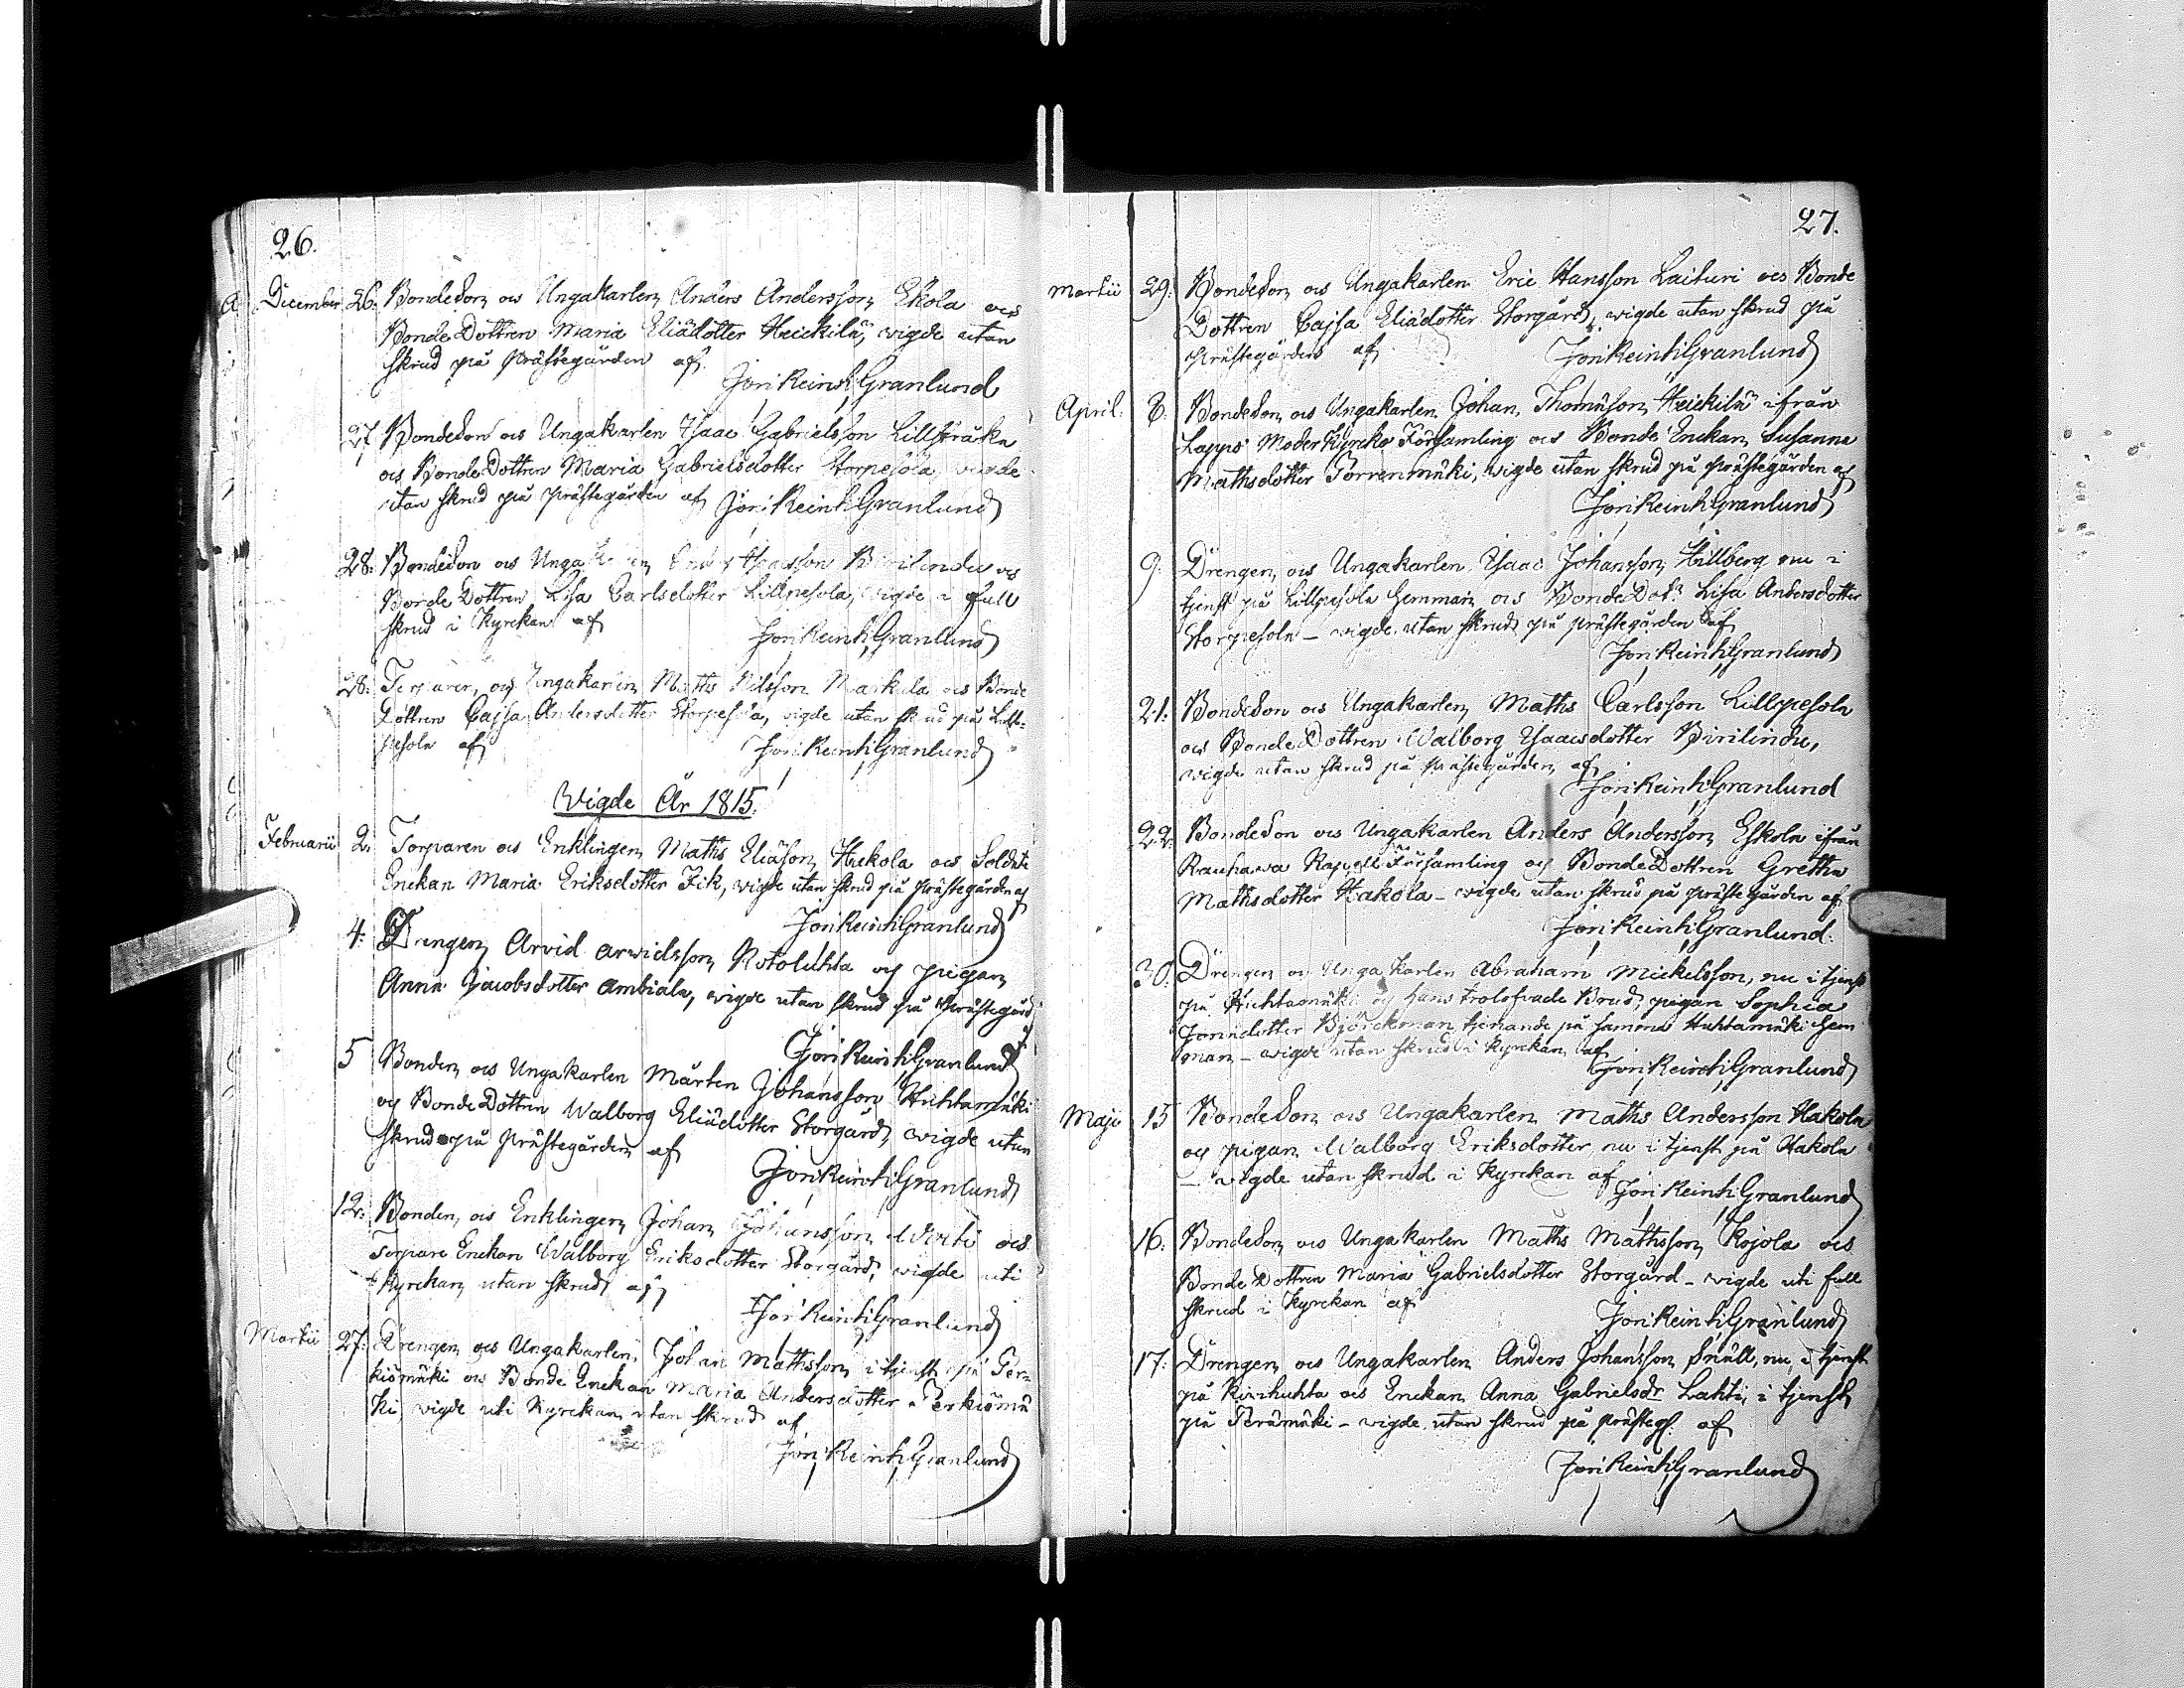 26.
December 26. Bondeson ocs Ungakarlen Anders Andersson Ekola ocs
BondeDottren Maria Eliædotter Heickilä, wigde utan
skrud på Prästegården af
Jon: Reinh: Granlund
27. Bondeson ocs Ungakarlen Isaac Gabrielsson Lillstråka
ocs BondeDottren Maria Gabrielsdotter Storpesola wigde
utan skrud på prästegården af Jon: Reinh: Granlund
28. Bondeson ocs Ungakarlen Isacsson Pirilindu ocs
Bonde Dottren Lisa Carlsdotter Lillpesola, wigde i full
skrud i Kyrckan af
Jon: Reinh: Granlund
28. Torparen, och Ungakarlen Maths Nilsson Markila ocs Bonde
Dottren Cajsa Andersdotter Storpesola, wigde utan skrud på Lill-
pesola af
Jon: Reinh: Granlund
Wigde År 1815.
Februarii 2. Torparen ocs Enklingen Maths Eliæson Hiekola ocs Soldate
Enckan Maria Eriksdotter Fik, wigde utan skrud på prästegården af
Jon: Reinh: Granlund
4. Drengen Arvid Arwidsson Rotoluhta och pigan
Anna Jacobsdotter Ambiala, wigde utan skrud på Prästegård:
af
Jon: Reinh: Granlund
5 Bonden ocs Ungakarlen Mårten Johansson Huhtamäki
och BondeDottren Walborg Eliædotter Storgård, wigde utan
skrud på Prästegården af
Jon: Reinh: Granlund
12. Bonden, ocs Enklingen Johan Johansson Wirti ocs
Torpare Enckan Walborg Eriksdotter Storgård, wigde uti
Kyrckan utan skrud af
Jon: Reinh: Granlund
Martii 27. Drengen ocs Ungakarlen Johan Mathsson i tjenst på Per-
kiömäki ocs Bonde Enckan Maria Andersdotter Perkiömä
ki, wigde uti Kyrckan utan skrud af
Jon: Reinh: Granlund
27.
Martii 29. Bondeson ocs Ungakarlen Eric Hansson Laituri ocs Bonde
Dottren Cajsa Eliædotter Storgård, wigde utan skrud på
prästegården af
Jon: Reinh: Granlund
April. 8. Bondeson ocs Ungakarlen Johan Thomæson Heickilä ifrån
Lappo ModerKyrcko Församling ocs Bonde Enckan Susanna
Mathsdotter Porrenmäki, wigde utan skrud på prästegården af
Jon: Reinh: Granlund
9. Drengen ocs Ungakarlen Isaac Johansson Hillberg nu i
tjenst på Lillpesola Hemman ocs BondeDot: Lisa Andersdotter
Storpesola – wigde utan skrud på prästegården af
Jon: Reinh: Granlund
21. Bondeson ocs Ungakarlen Maths Carlsson Lillpesola
ocs BondeDottren Walborg Isaacsdotter Pirilindu,
wigde utan skrud på prästegården af
Jon: Reinh: Granlund
22. Bondeson ocs Ungakarlen Anders Andersson Eskola ifrån
Kauhawa Kapell Församling och BondeDottren Gretha
Mathsdotter Hakola – wigde utan skrud på prästegården af
Jon: Reinh: Granlund.
30. Drengen ocs Ungakarlen Abraham Mickelsson, nu i tjenst
på Huhtamäki och hans trolofvade Brud, pigan Sophia
Jonædotter Björckman tjenande på samma Huhtamäki hem
man – wigde utan skrud i kyrckan af
Jon: Reinh: Granlund
Maji 15 Bondeson ocs Ungakarlen Maths Andersson Hakola
och pigan Walborg Eriksdotter nu i tjenst på Hakola
– wigde utan skrud i Kyrckan af Jon: Reinh: Granlund
16. Bondeson ocs Ungakarlen Maths Mathsson Kojola ocs
Bonde Dottren Maria Gabrielsdotter Storgård – wigde uti full
skrud i Kyrckan af
Jon: Reinh: Granlund
17. Drengen ocs Ungakarlen Anders Johansson Snäll, nu i tjenst
på Kivihuhta ocs Enckan Anna Gabrielsdr Lahti, i tjenst
på Perämäki – wigde utan skrud på prästeg: af
Jon: Reinh: Granlund